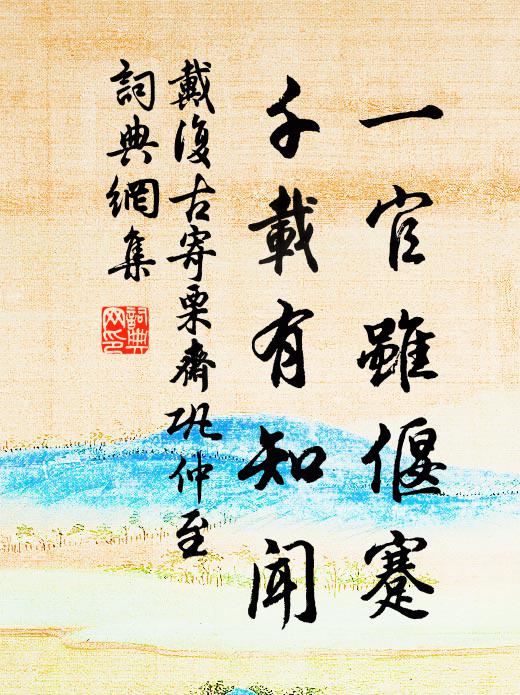 一官雖偃蹇
千載有知聞
戴復古寄栗齋巩仲至
詞典網集
詞典网印